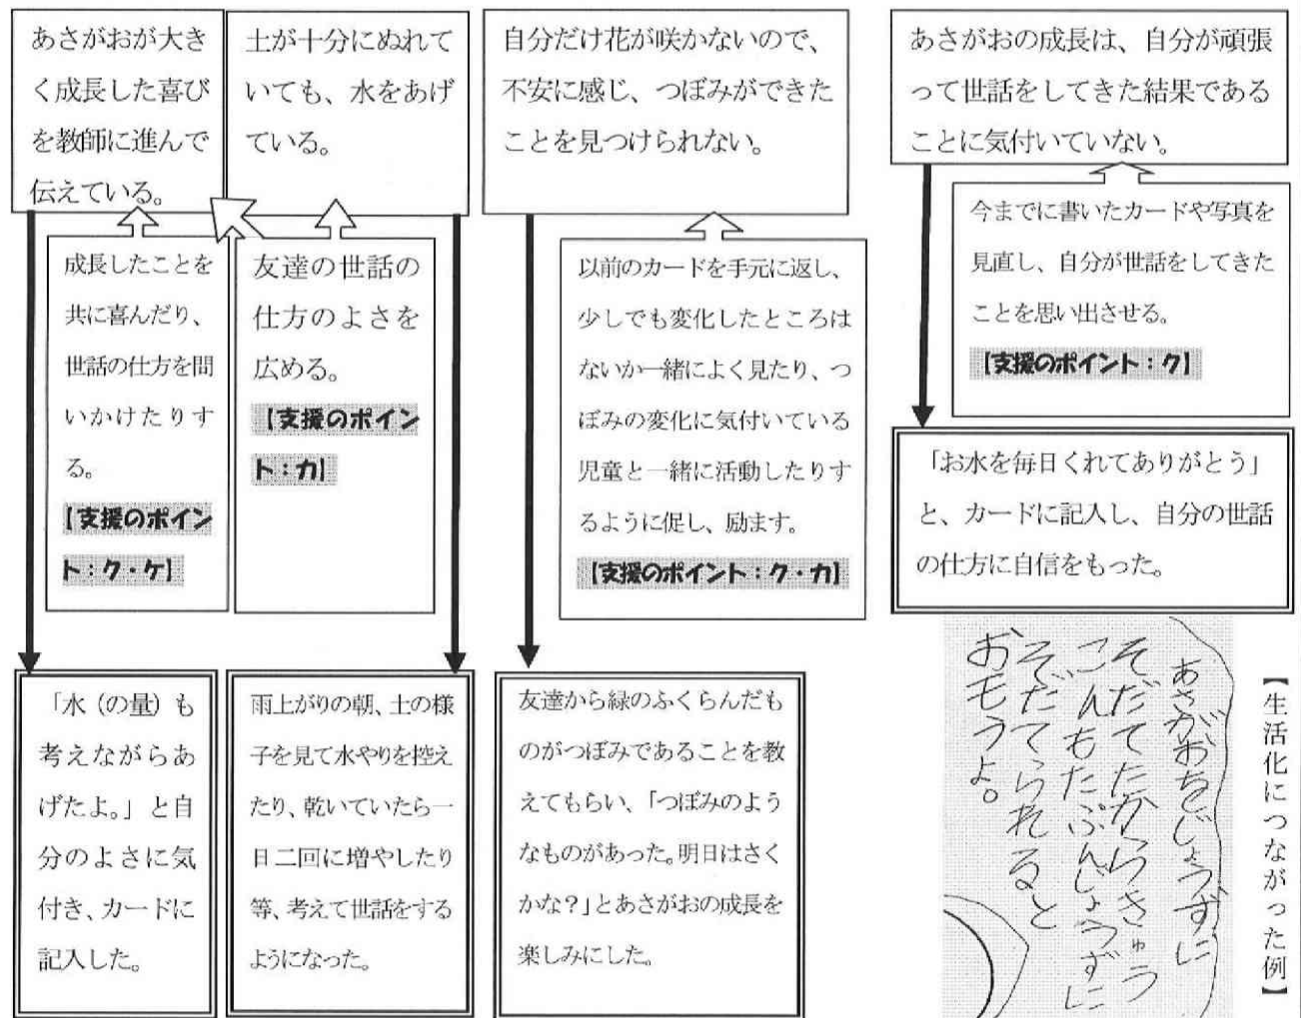 あさがおが大き
く成長した喜び
を教師に進んで
伝えている。
土が十分にぬれて
いても、水をあげ
ている。
自分だけ花が咲かないので、
不安に感じ、つぼみができた
ことを見つけられない。
あさがおの成長は、自分が頑張
って世話をしてきた結果である
ことに気付いていない。
成長したことを
共に喜んだり、
世話の仕方を問
いかけたりす
る。
【支援のポイン
ト：ク・ケ】
友達の世話の
仕方のよさを
広める。
【支援のポイン
ト：カ】
以前のカードを手元に返し、
少しでも変化したところは
ないか一緒によく見たり、つ
ぼみの変化に気付いている
児童と一緒に活動したりす
るように促し、励ます。
【支援のポイント：ク・カ】
今までに書いたカードや写真を
見直し、自分が世話をしてきた
ことを思い出させる。
【支援のポイント：ク】
「お水を毎日くれてありがとう」
と、カードに記入し、自分の世話
の仕方に自信をもった。
「水（の量）も
考えながらあ
げたよ。」と自
分のよさに気
付き、カードに
記入した。
雨上がりの朝、土の様
子を見て水やりを控え
たり、乾いていたら一
日二回に増やしたり
等、考えて世話をする
ようになった。
友達から緑のふくらんだも
のがつぼみであることを教
えてもらい、「つぼみのよう
なものがあった。明日はさく
かな？」とあさがおの成長を
楽しみにした。
【生活化につながった例】
あさがおをじょうずに
そだてたからきゅう
こんもたぶんじょうずに
そだてられると
おもうよ。